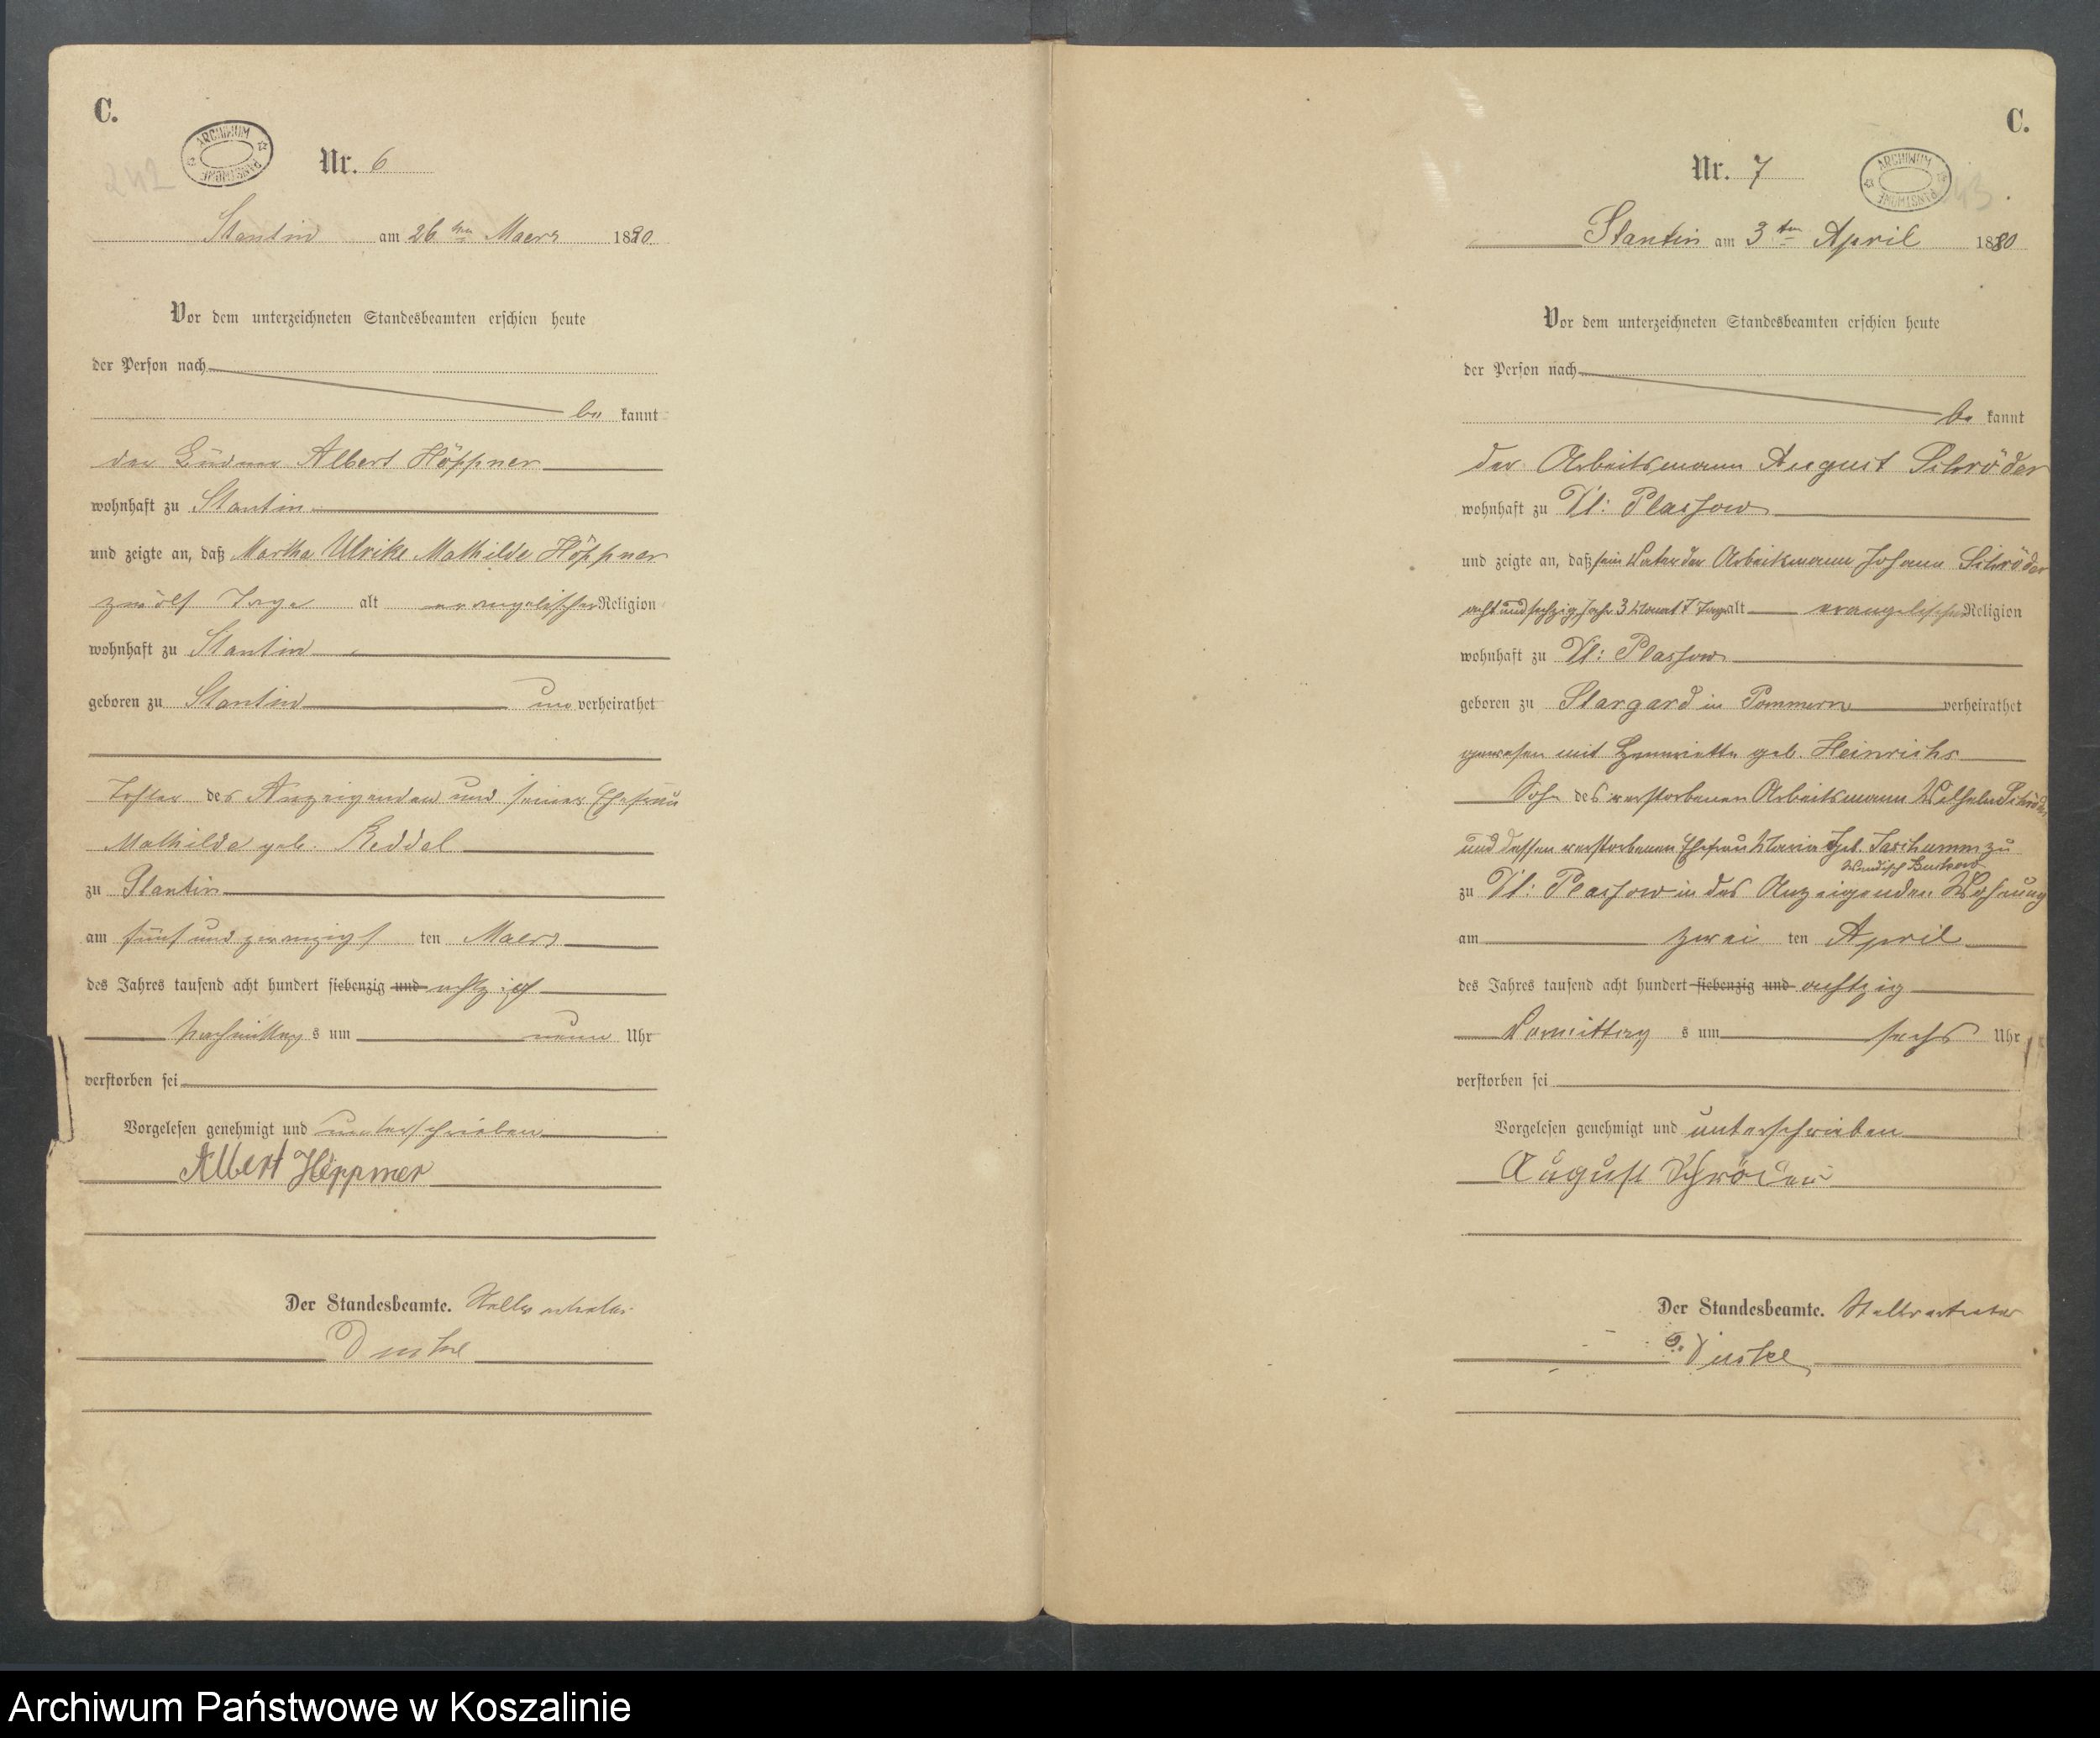 C.
ARCHIWUM PAŃSTWOWE
242
Nr. 6
Stantin am 26 ten Maerz 1880
Vor dem unterzeichneten Standesbeamten erschien heute
der Person nach
be kannt
der Albert Höppner
wohnhaft zu Stantin
und zeigte an, daß Martha Ulrike Mathilde Höppner
zwölf Tage alt evangelischer Religion
wohnhaft zu Stantin
geboren zu Stantin un verheirathet
Tochter des Anzeigenden und seiner Ehefrau
Mathilde geb. Reddel
zu Stantin
am fünf und zwanzigst ten Maerz
des Jahres tausend acht hundert siebenzig und achtzig
Nachmittag s um neun Uhr
verstorben sei
Vorgelesen genehmigt und unterschrieben
Albert Höppner
Der Standesbeamte. Stellvertreter
C.
Nr. 7
ARCHIWUM PAŃSTWOWE
Stantin am 3 ten April 1880
Vor dem unterzeichneten Standesbeamten erschien heute
der Person nach
be kannt
der Arbeitsmann August Schröder
wohnhaft zu Kl: Plassow
und zeigte an, daß sein Vater der Arbeitsmann Johann Schröder
acht und sechzig Jahr 3 Monat 7 Tage alt evangelischer Religion
wohnhaft zu Kl: Plassow
geboren zu Stargard in Pommern verheirathet
gewesen mit Henriette geb. Heinrichs
Sohn des verstorbenen Arbeitsmann Wilhelm Schröder
und dessen verstorbenen Ehefrau Maria geb. zu
Wendisch
zu Kl: Plassow in des Anzeigenden Wohnung
am zwei ten April
des Jahres tausend acht hundert siebenzig und achtzig
Vormittag s um sechs Uhr
verstorben sei
Vorgelesen genehmigt und unterschrieben
August Schröder
Der Standesbeamte. Stellvertreter
Archiwum Państwowe w Koszalinie